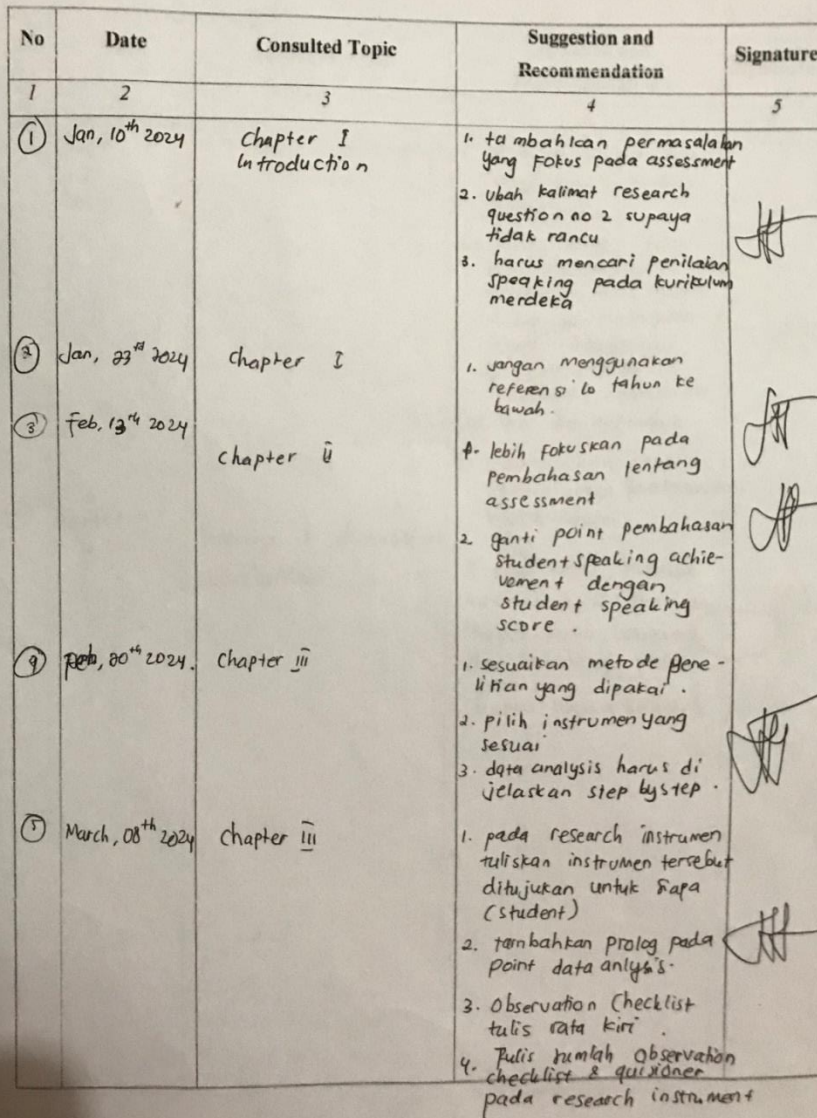 No Date Consulted Topic Suggestion and Recommendation Signature
1 2 3 4 5
1 Jan, 10th 2024 Chapter I
Introduction
1. tambahkan permasalahan
yang Fokus pada assessment
2. ubah kalimat research
question no 2 supaya
tidak rancu
3. harus mencari penilaian
speaking pada kurikulum
merdeka
2 Jan, 23rd 2024 Chapter I
1. Jangan menggunakan
referensi 10 tahun ke
bawah.
3 Feb, 13th 2024
Chapter II
1. lebih Fokuskan pada
pembahasan tentang
assessment
2. ganti point pembahasan
student speaking achie-
vement dengan
student speaking
score.
4 Feb, 20th 2024. Chapter III
1. sesuaikan metode pene-
litian yang dipakai.
2. pilih instrumen yang
sesuai
3. data analysis harus di
jelaskan step by step.
5 March, 08th 2024 Chapter III
1. pada research instrumen
tuliskan instrumen tersebut
ditujukan untuk siapa
(student)
2. tambahkan prolog pada
point data anlysis.
3. Observation Checklist
tulis rata kiri.
4. Tulis Jumlah Observation
checklist & quisioner
pada research instrument